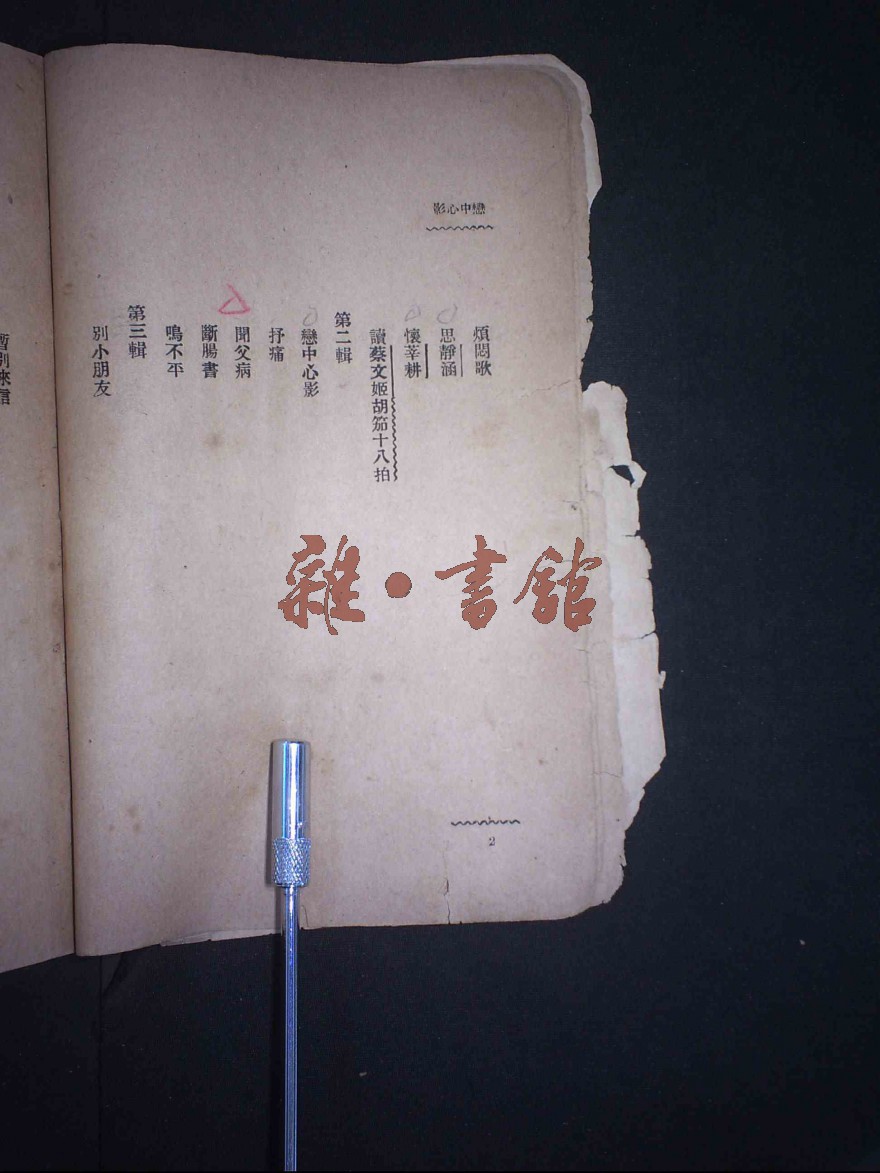 戀中心影
煩悶歌
思靜涵
懷莘耕
讀蔡文姬胡笳十八拍
第二輯
戀中心影
抒痛
聞父病
斷腸書
鳴不平
第三輯
別小朋友
暫別來信
2
雜·書館